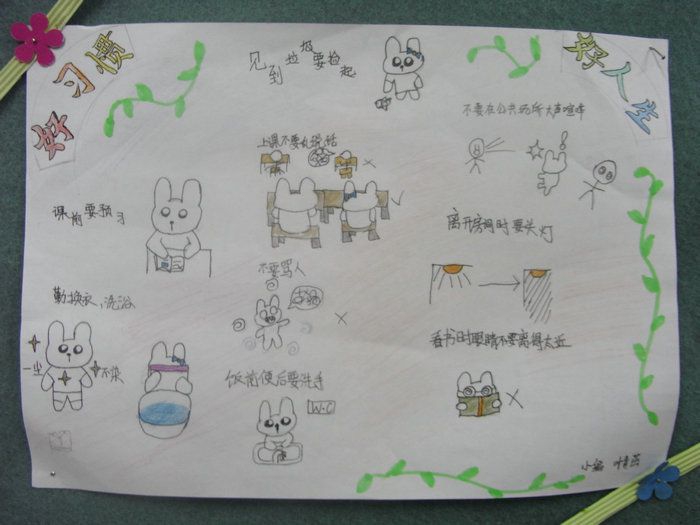 好习惯
好人生
见到垃圾要捡起
不要在公共场所大声喧哗
上课不要乱说话
课前要预习
离开房间时要关灯
不要骂人
勤换衣、洗浴
一尘不染
看书时眼睛不要离得太近
饭前便后要洗手
W.C
小编